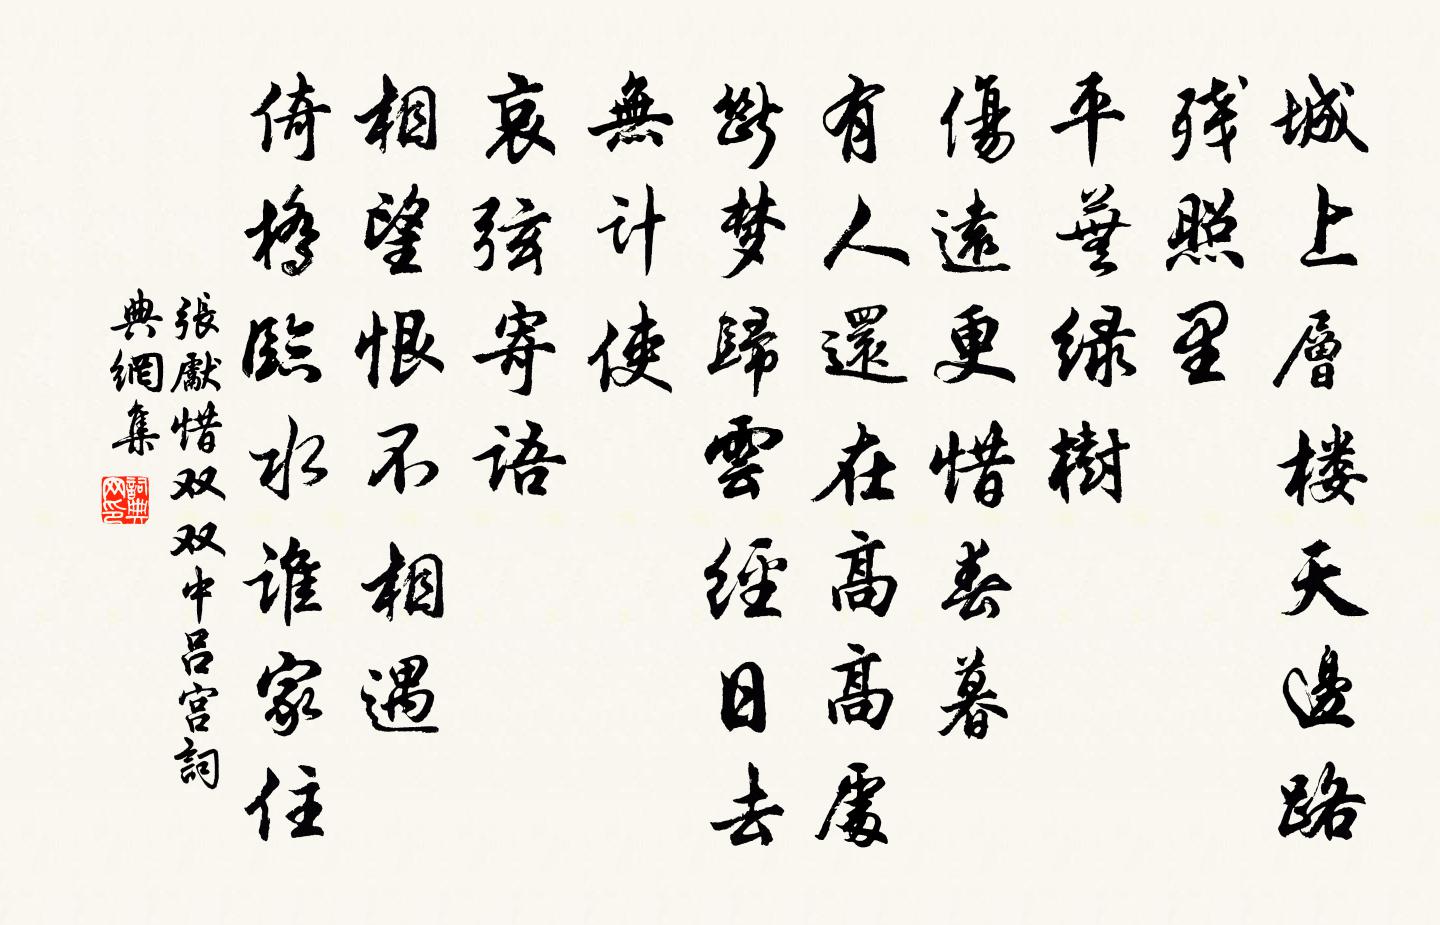 城上層楼天邊路
残照里
平蕪绿樹
傷遠更惜春暮
有人還在高高處
断梦歸雲經日去
無计使
哀弦寄语
相望恨不相遇
倚橋臨水谁家住
張獻惜双双中吕宫詞
典網集
詞典网印